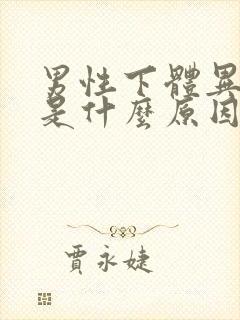 男性下體異
是什麼原因
賈永婕